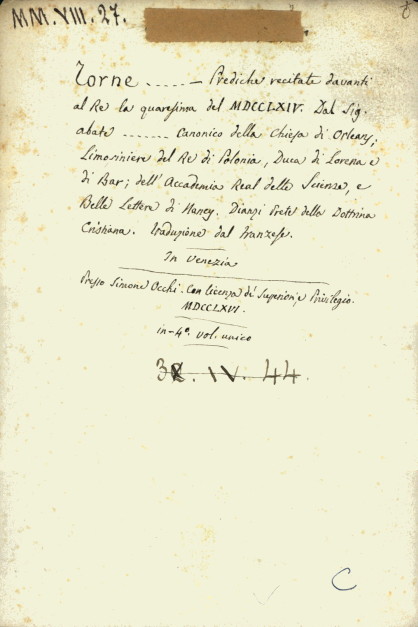 MM.VIII.27.
Torne ..... — Prediche recitate davanti
al Re la quaresima del MDCCLXIV. Dal Sig.
abate ....... Canonico della Chiesa di Orleans,
Limosiniere del Re di Polonia, Duca di Lorena e
di Bar; dell'Accademia Real delle Scienze, e
Belle Lettere di Nancy. Dianzi Prete della Dottrina
Cristiana. Traduzione dal Franzese.
In Venezia
Presso Simone Occhi. Con licenza de' Superiori, e Privilegio.
MDCCLXVI.
in-4°. vol. unico
IV. 44.
C